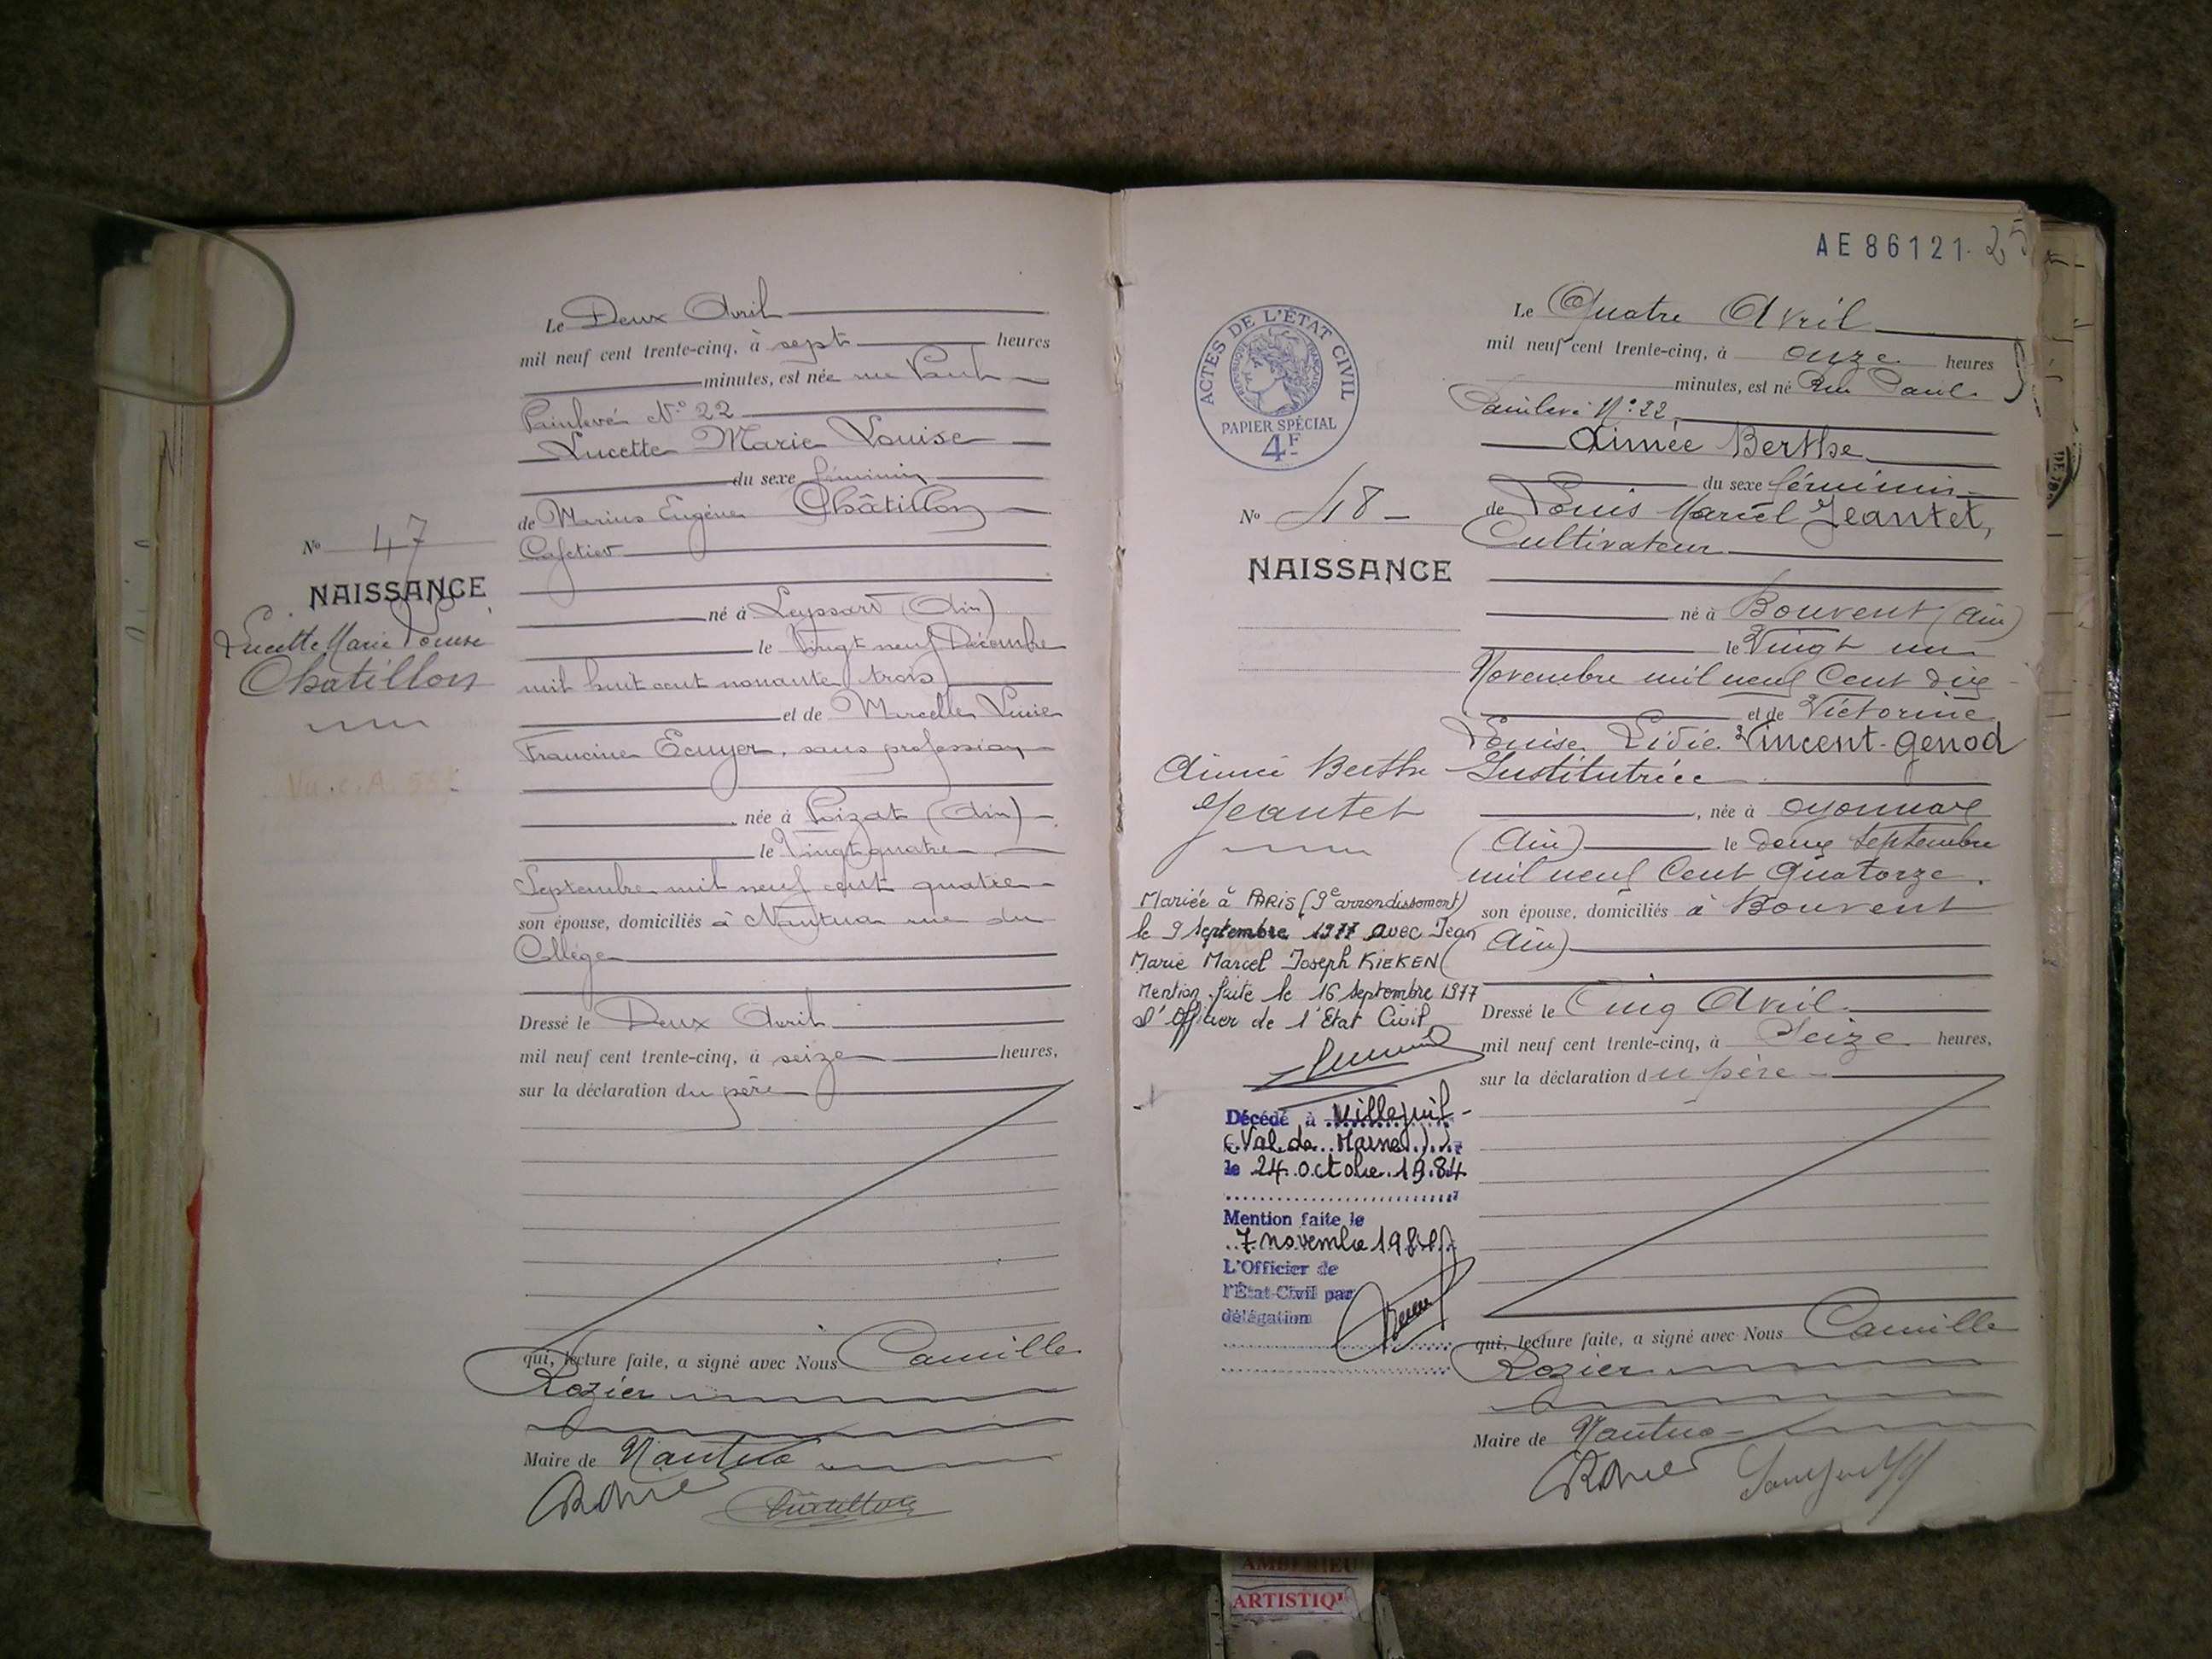 Le Deux Avril
mil neuf cent trente-cinq, à sept heures
minutes, est née rue Paul
Painlevé N° 22
Lucette Marie Louise
du sexe féminin
de Marius Eugène Châtillon
Cafetier
N° 47
NAISSANCE
Lucette Marie Louise
Chatillon
né à Leyssard (Ain)
le Vingt neuf Décembre
mil huit cent nonante trois
et de Marcelle Lucie
Francine Ecuyer, sans profession
née à Poizat (Ain)
le Vingt quatre
Septembre mil neuf cent quatre
son épouse, domiciliés à Nantua rue du
Collège
Dressé le Deux Avril
mil neuf cent trente-cinq, à seize heures,
sur la déclaration du père
qui, lecture faite, a signé avec Nous Camille
Rozier
Maire de Nantua
Chatillon
AE 86121
25
ACTES DE L'ÉTAT CIVIL
RÉPUBLIQUE FRANÇAISE
PAPIER SPÉCIAL
4F
Le Quatre Avril
mil neuf cent trente-cinq, à onze heures
minutes, est né Rue Paul
Painlevé N° 22
Aimée Berthe
du sexe féminin
N° 48
de Louis Marcel Jeantet,
Cultivateur
NAISSANCE
né à Bouvent (Ain)
le Vingt un
Novembre mil neuf Cent dix
et de Victorine
Louise Lidie Vincent-Genod
Institutrice
Aimée Berthe
Jeantet
, née à Oyonnax
(Ain) le douze Septembre
mil neuf Cent Quatorze.
son épouse, domiciliés à Bouvent
(Ain)
Mariée à PARIS (9e arrondissement)
le 9 septembre 1977 avec Jean
Marie Marcel Joseph KIEKEN
Mention faite le 16 septembre 1977
L'Officier de l'Etat Civil
Dressé le Cinq Avril
mil neuf cent trente-cinq, à Seize heures,
sur la déclaration du père
Décédé à Villejuif
(Val de Marne)
le 24 octobre 1984
Mention faite le
7 novembre 1984
L'Officier de
l'État-Civil par
délégation
qui, lecture faite, a signé avec Nous Camille
Rozier
Maire de Nantua
AMBERIEU
ARTISTIQ